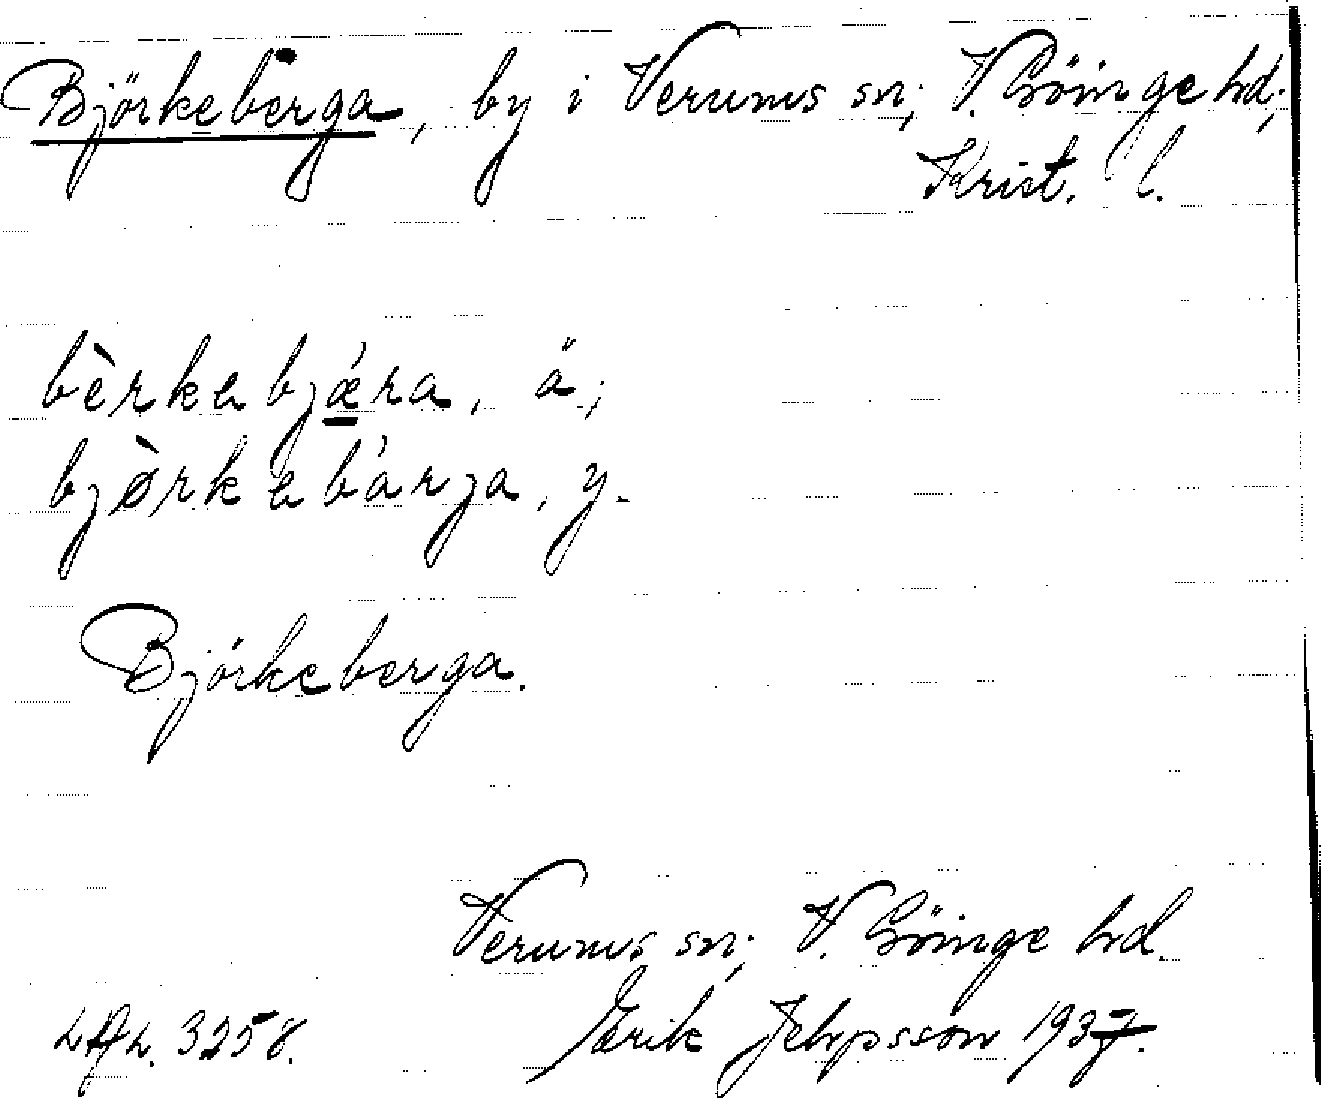 Björkeberga, by i Verums sn; V. Göinge hd;
Krist. l.
bèrkabjǽra, ä;
bjørkabárja, y.
Björkeberga.
Verums sn; V. Göinge hd.
3258. Erik Jehpsson 1937.